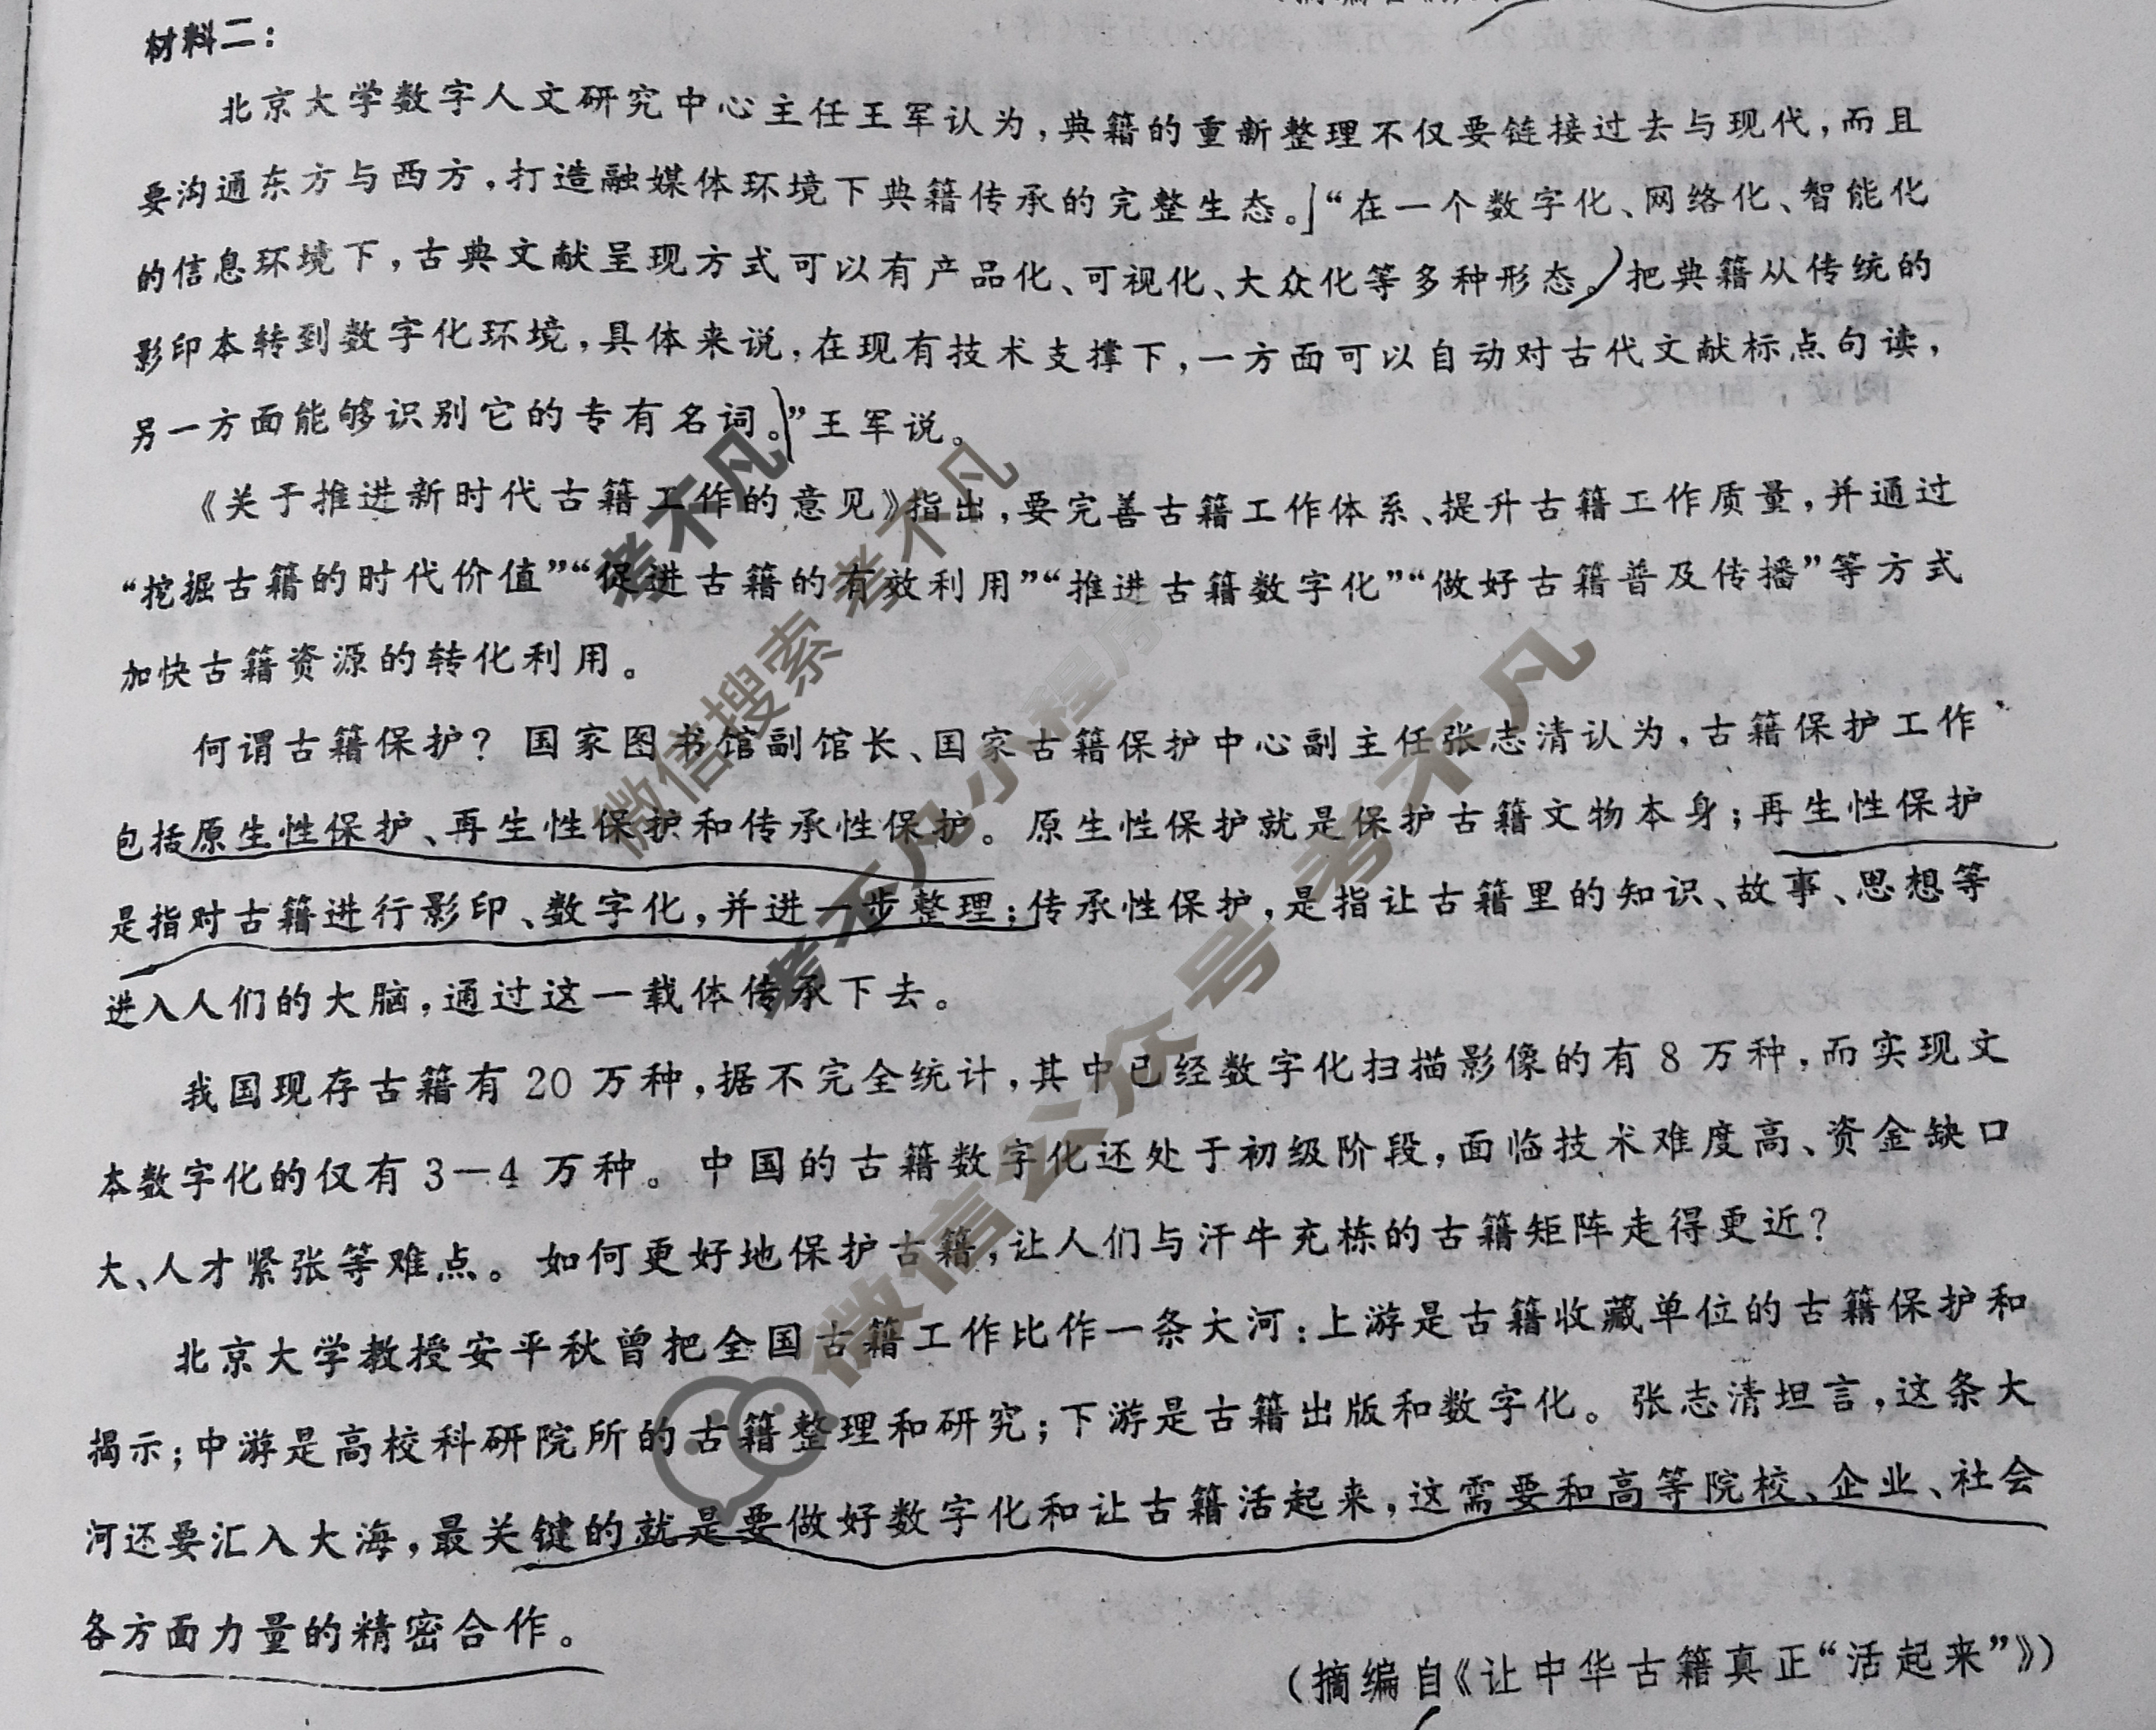 材料二：
北京大学数字人文研究中心主任王军认为，典籍的重新整理不仅要链接过去与现代，而且
要沟通东方与西方，打造融媒体环境下典籍传承的完整生态。“在一个数字化、网络化、智能化
的信息环境下，古典文献呈现方式可以有产品化、可视化、大众化等多种形态。把典籍从传统的
影印本转到数字化环境，具体来说，在现有技术支撑下，一方面可以自动对古代文献标点句读，
另一方面能够识别它的专有名词。”王军说。
《关于推进新时代古籍工作的意见》指出，要完善古籍工作体系、提升古籍工作质量，并通过
“挖掘古籍的时代价值”“促进古籍的有效利用”“推进古籍数字化”“做好古籍普及传播”等方式
加快古籍资源的转化利用。
何谓古籍保护？国家图书馆副馆长、国家古籍保护中心副主任张志清认为，古籍保护工作
包括原生性保护、再生性保护和传承性保护。原生性保护就是保护古籍文物本身；再生性保护
是指对古籍进行影印、数字化，并进一步整理；传承性保护，是指让古籍里的知识、故事、思想等
进入人们的大脑，通过这一载体传承下去。
我国现存古籍有20万种，据不完全统计，其中已经数字化扫描影像的有8万种，而实现文
本数字化的仅有3—4万种。中国的古籍数字化还处于初级阶段，面临技术难度高、资金缺口
大、人才紧张等难点。如何更好地保护古籍，让人们与汗牛充栋的古籍矩阵走得更近？
北京大学教授安平秋曾把全国古籍工作比作一条大河：上游是古籍收藏单位的古籍保护和
揭示；中游是高校科研院所的古籍整理和研究；下游是古籍出版和数字化。张志清坦言，这条大
河还要汇入大海，最关键的就是要做好数字化和让古籍活起来，这需要和高等院校、企业、社会
各方面力量的精密合作。
（摘编自《让中华古籍真正“活起来”》）
考不凡
微信搜索 考不凡
考不凡小程序
微信公众号 考不凡